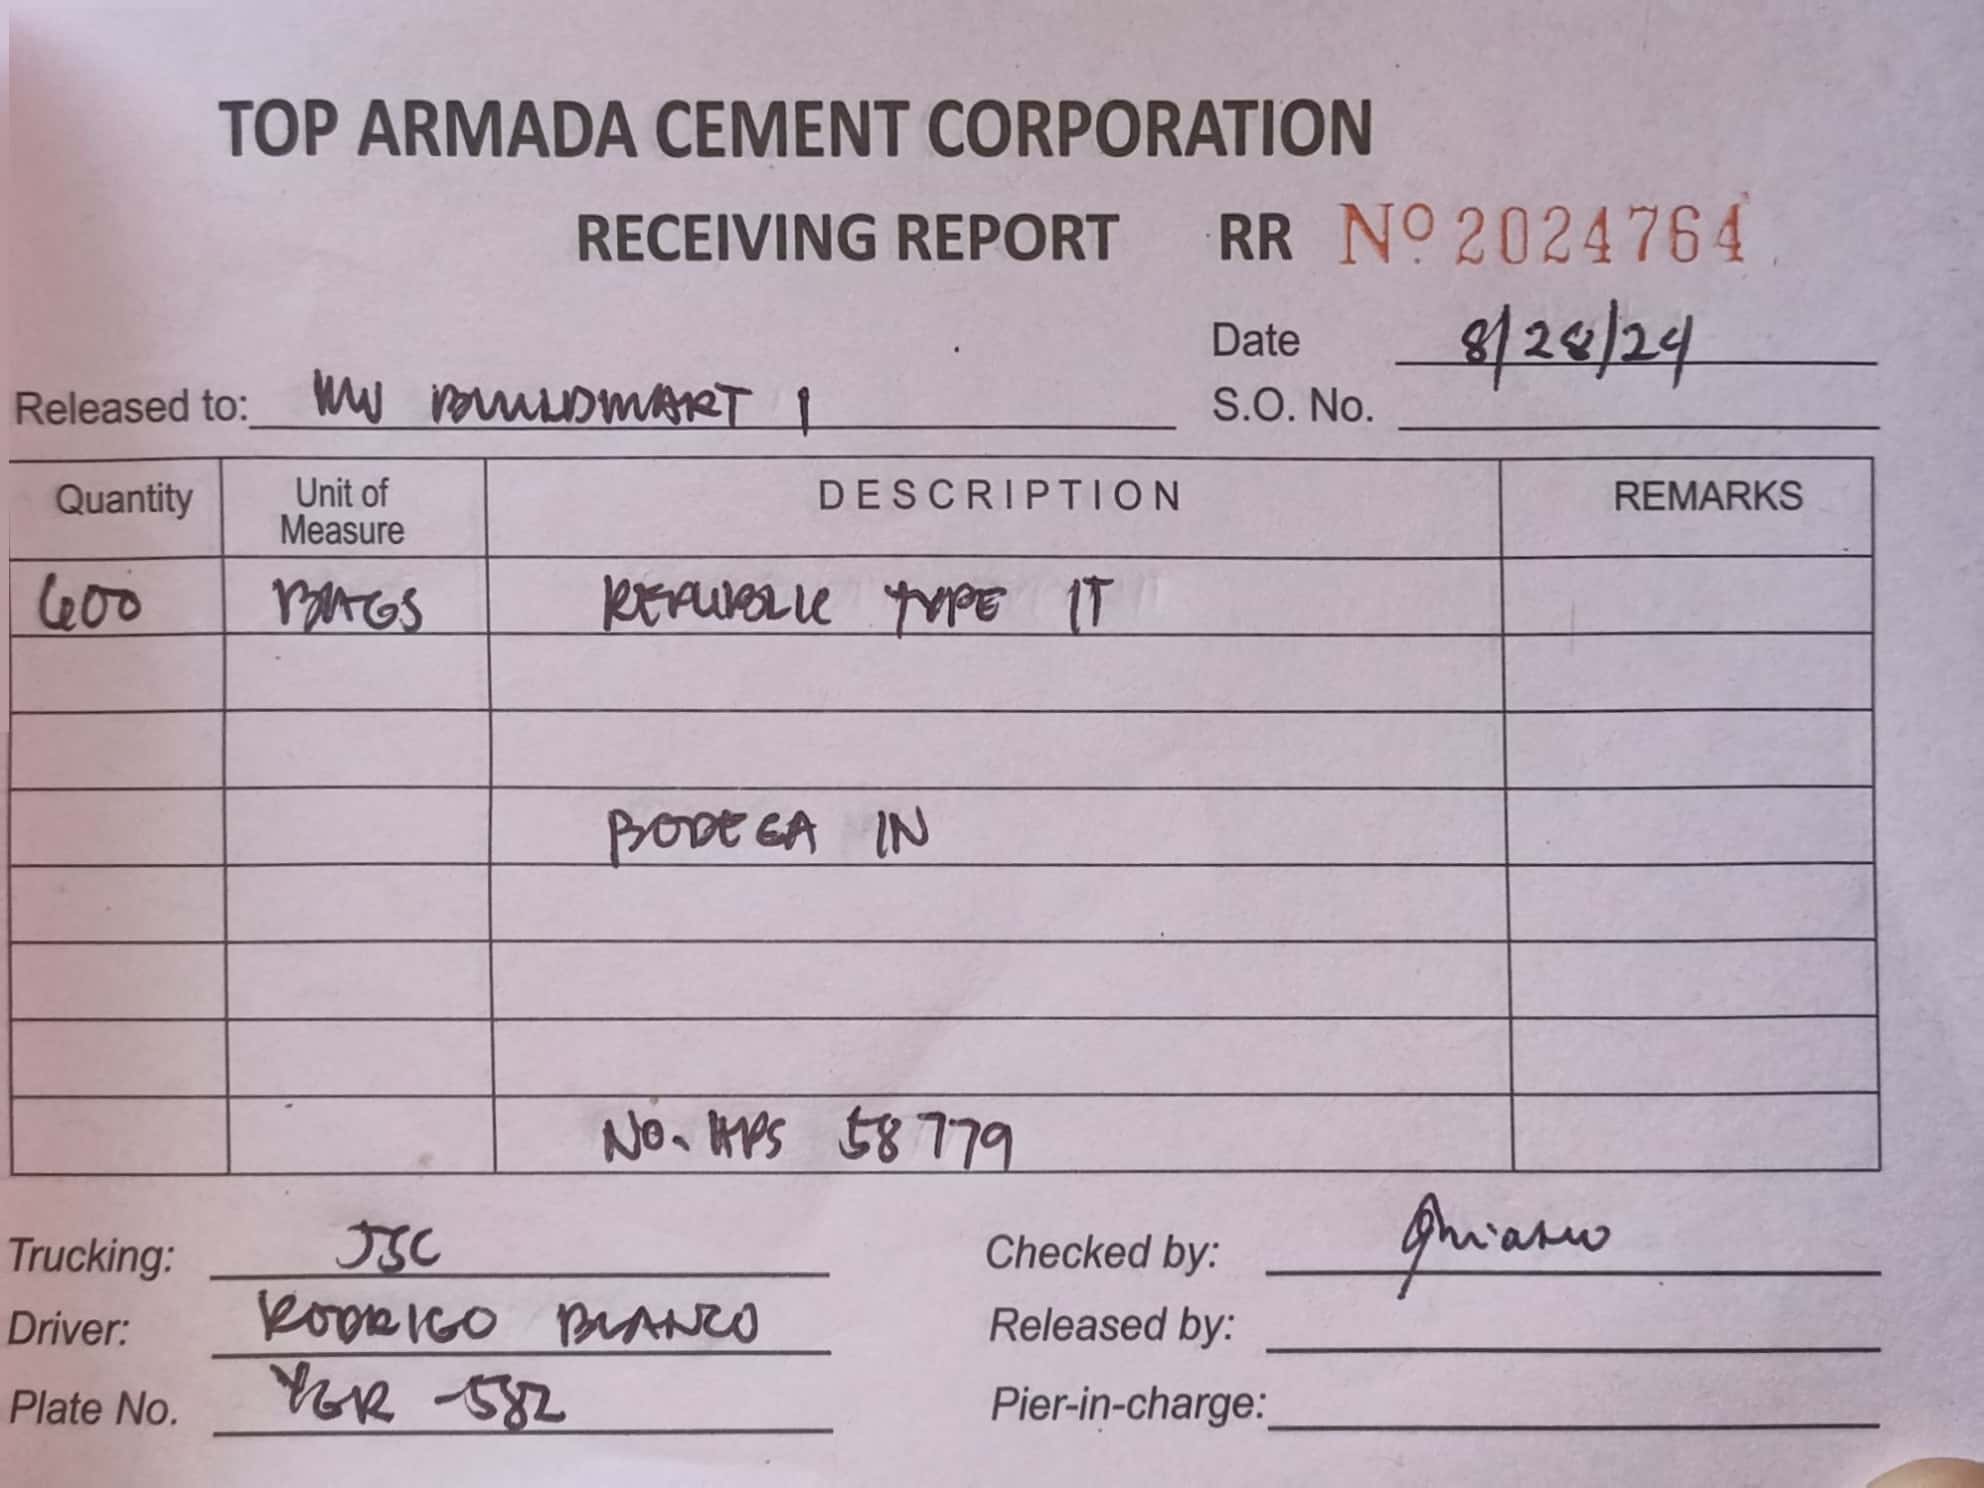 TOP ARMADA CEMENT CORPORATION
RECEIVING REPORT RR Nº 2024764
Date 8/28/24
Released to: MV BUILDMART 1 S.O. No.
Quantity Unit of Measure DESCRIPTION REMARKS
600 BAGS REPUBLIC TYPE 1T
BODEGA IN
No. HPS 58779
Trucking: JSC Checked by:
Driver: RODRIGO BLANCO Released by:
Plate No. YGR -582 Pier-in-charge: